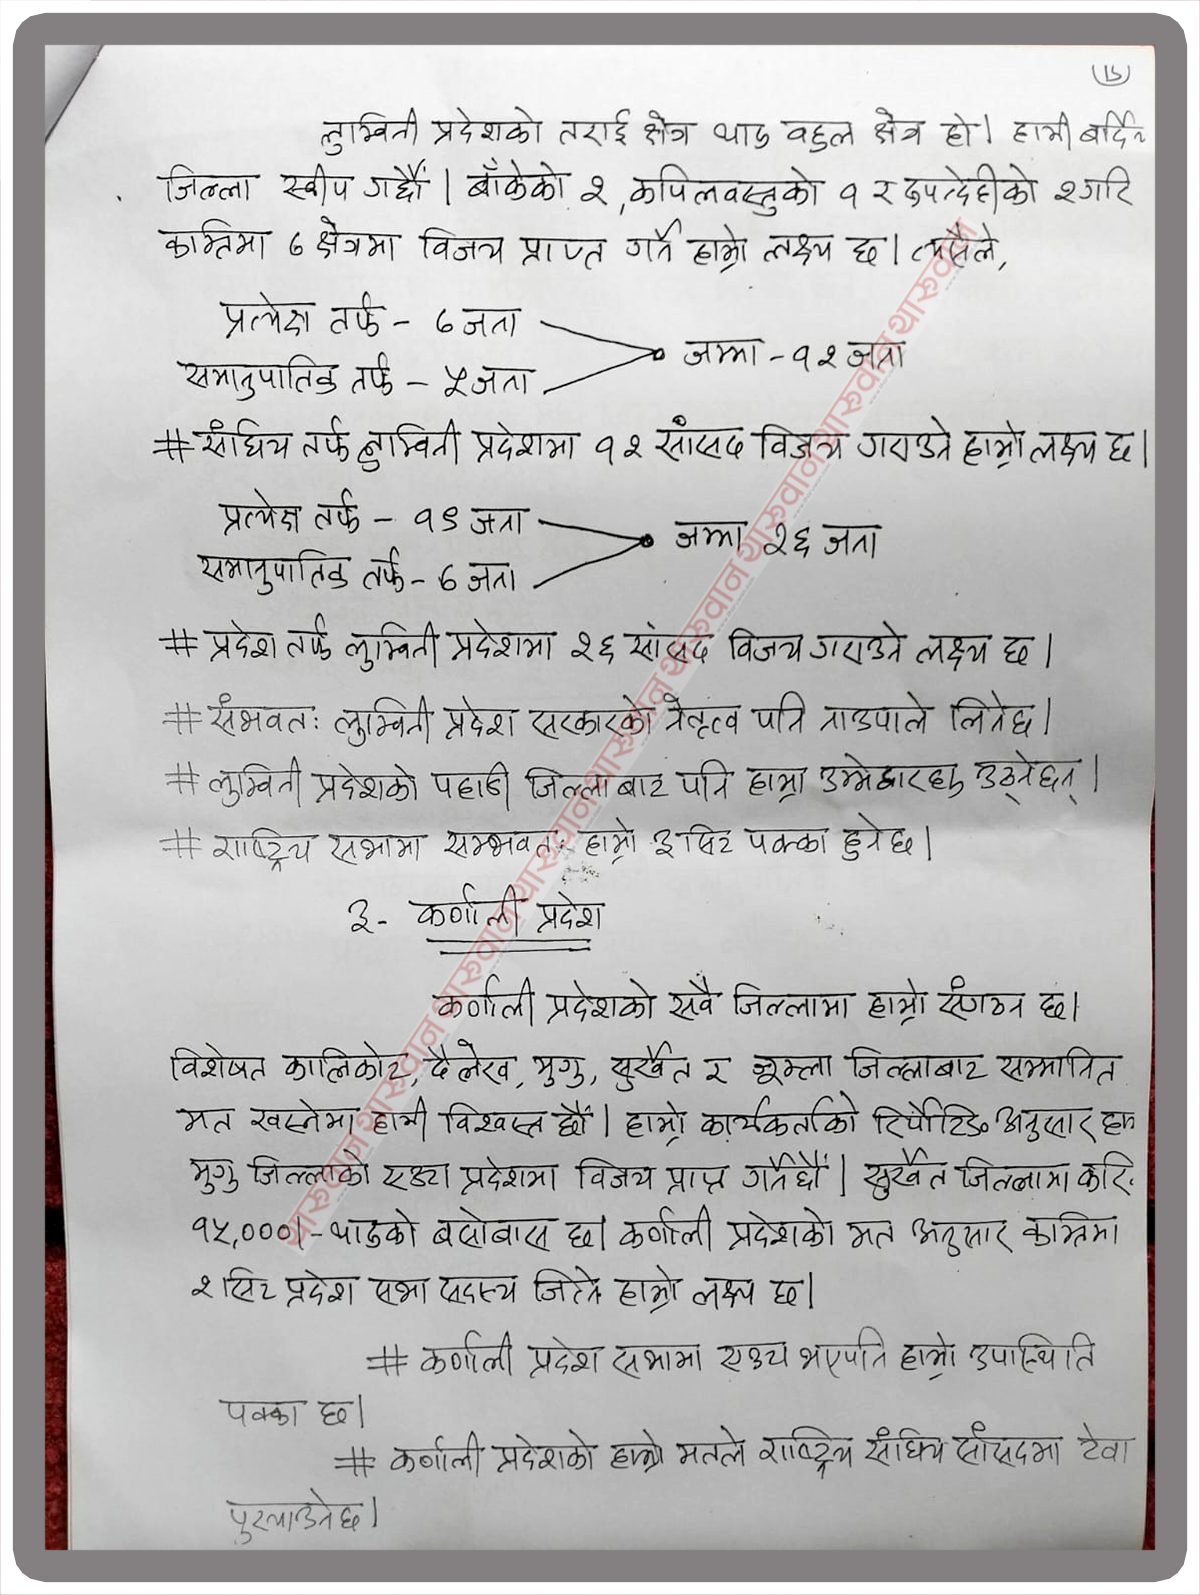 (15)
लुम्बिनी प्रदेशको तराई क्षेत्र थारु वहुल क्षेत्र हो। हामी
जिल्ला स्वीप गर्छौं। बाँकेको २, कपिलवस्तुको १ र रुपन्देहीको २ गरि
काम्तिमा ७ क्षेत्रमा विजय प्राप्त गर्ने हाम्रो लक्ष्य छ। त्यसैले,
प्रत्येक्ष तर्फ - ७ जना
जम्मा - १२ जना
समानुपातिक तर्फ - ५ जना
# संघिय तर्फ लुम्बिनी प्रदेशमा १२ सांसद विजय गराउने हाम्रो लक्ष्य छ।
प्रत्येक्ष तर्फ - १९ जना
जम्मा २६ जना
समानुपातिक तर्फ - ७ जना
# प्रदेश तर्फ लुम्बिनी प्रदेशमा २६ सांसद विजय गराउने लक्ष्य छ।
# संभवतः लुम्बिनी प्रदेश सरकारको नेतृत्व पनि नाउपाले लिनेछ।
# लुम्बिनी प्रदेशको पहाडी जिल्लाबाट पनि हाम्रा उम्मेद्वारहरु उठ्नेछन्।
# राष्ट्रिय सभामा सम्भवतः हाम्रो ३ सिट पक्का हुनेछ।
३- कर्णाली प्रदेश
कर्णाली प्रदेशको सवै जिल्लामा हाम्रो संगठन छ।
विशेषत कालिकोट, दैलेख, मुगु, सुर्खेत र जूम्ला जिल्लाबाट सम्मानित
मत खस्नेमा हामी विश्वस्त छौं। हाम्रो कार्यकर्ताको रिपोर्टिङ अनुसार
मुगु जिल्लाको एउटा प्रदेशमा विजय प्राप्त गर्नेछौं। सुर्खेत जिल्लामा करि
१५,०००।- थारुको बसोबास छ। कर्णाली प्रदेशको मत अनुसार काम्तिमा
२ सिट प्रदेश सभा सदस्य जित्ने हाम्रो लक्ष्य छ।
# कर्णाली प्रदेश सभामा एउटा भएपनि हाम्रो उपास्थिति
पक्का छ।
# कर्णाली प्रदेशको हाम्रो मतले राष्ट्रिय संघिय सांसदमा टेवा
पुर्‍याउनेछ।
थारुवान थारुवान थारुवान थारुवान थारुवान थारुवान थारुवान थारुवान थारुवान